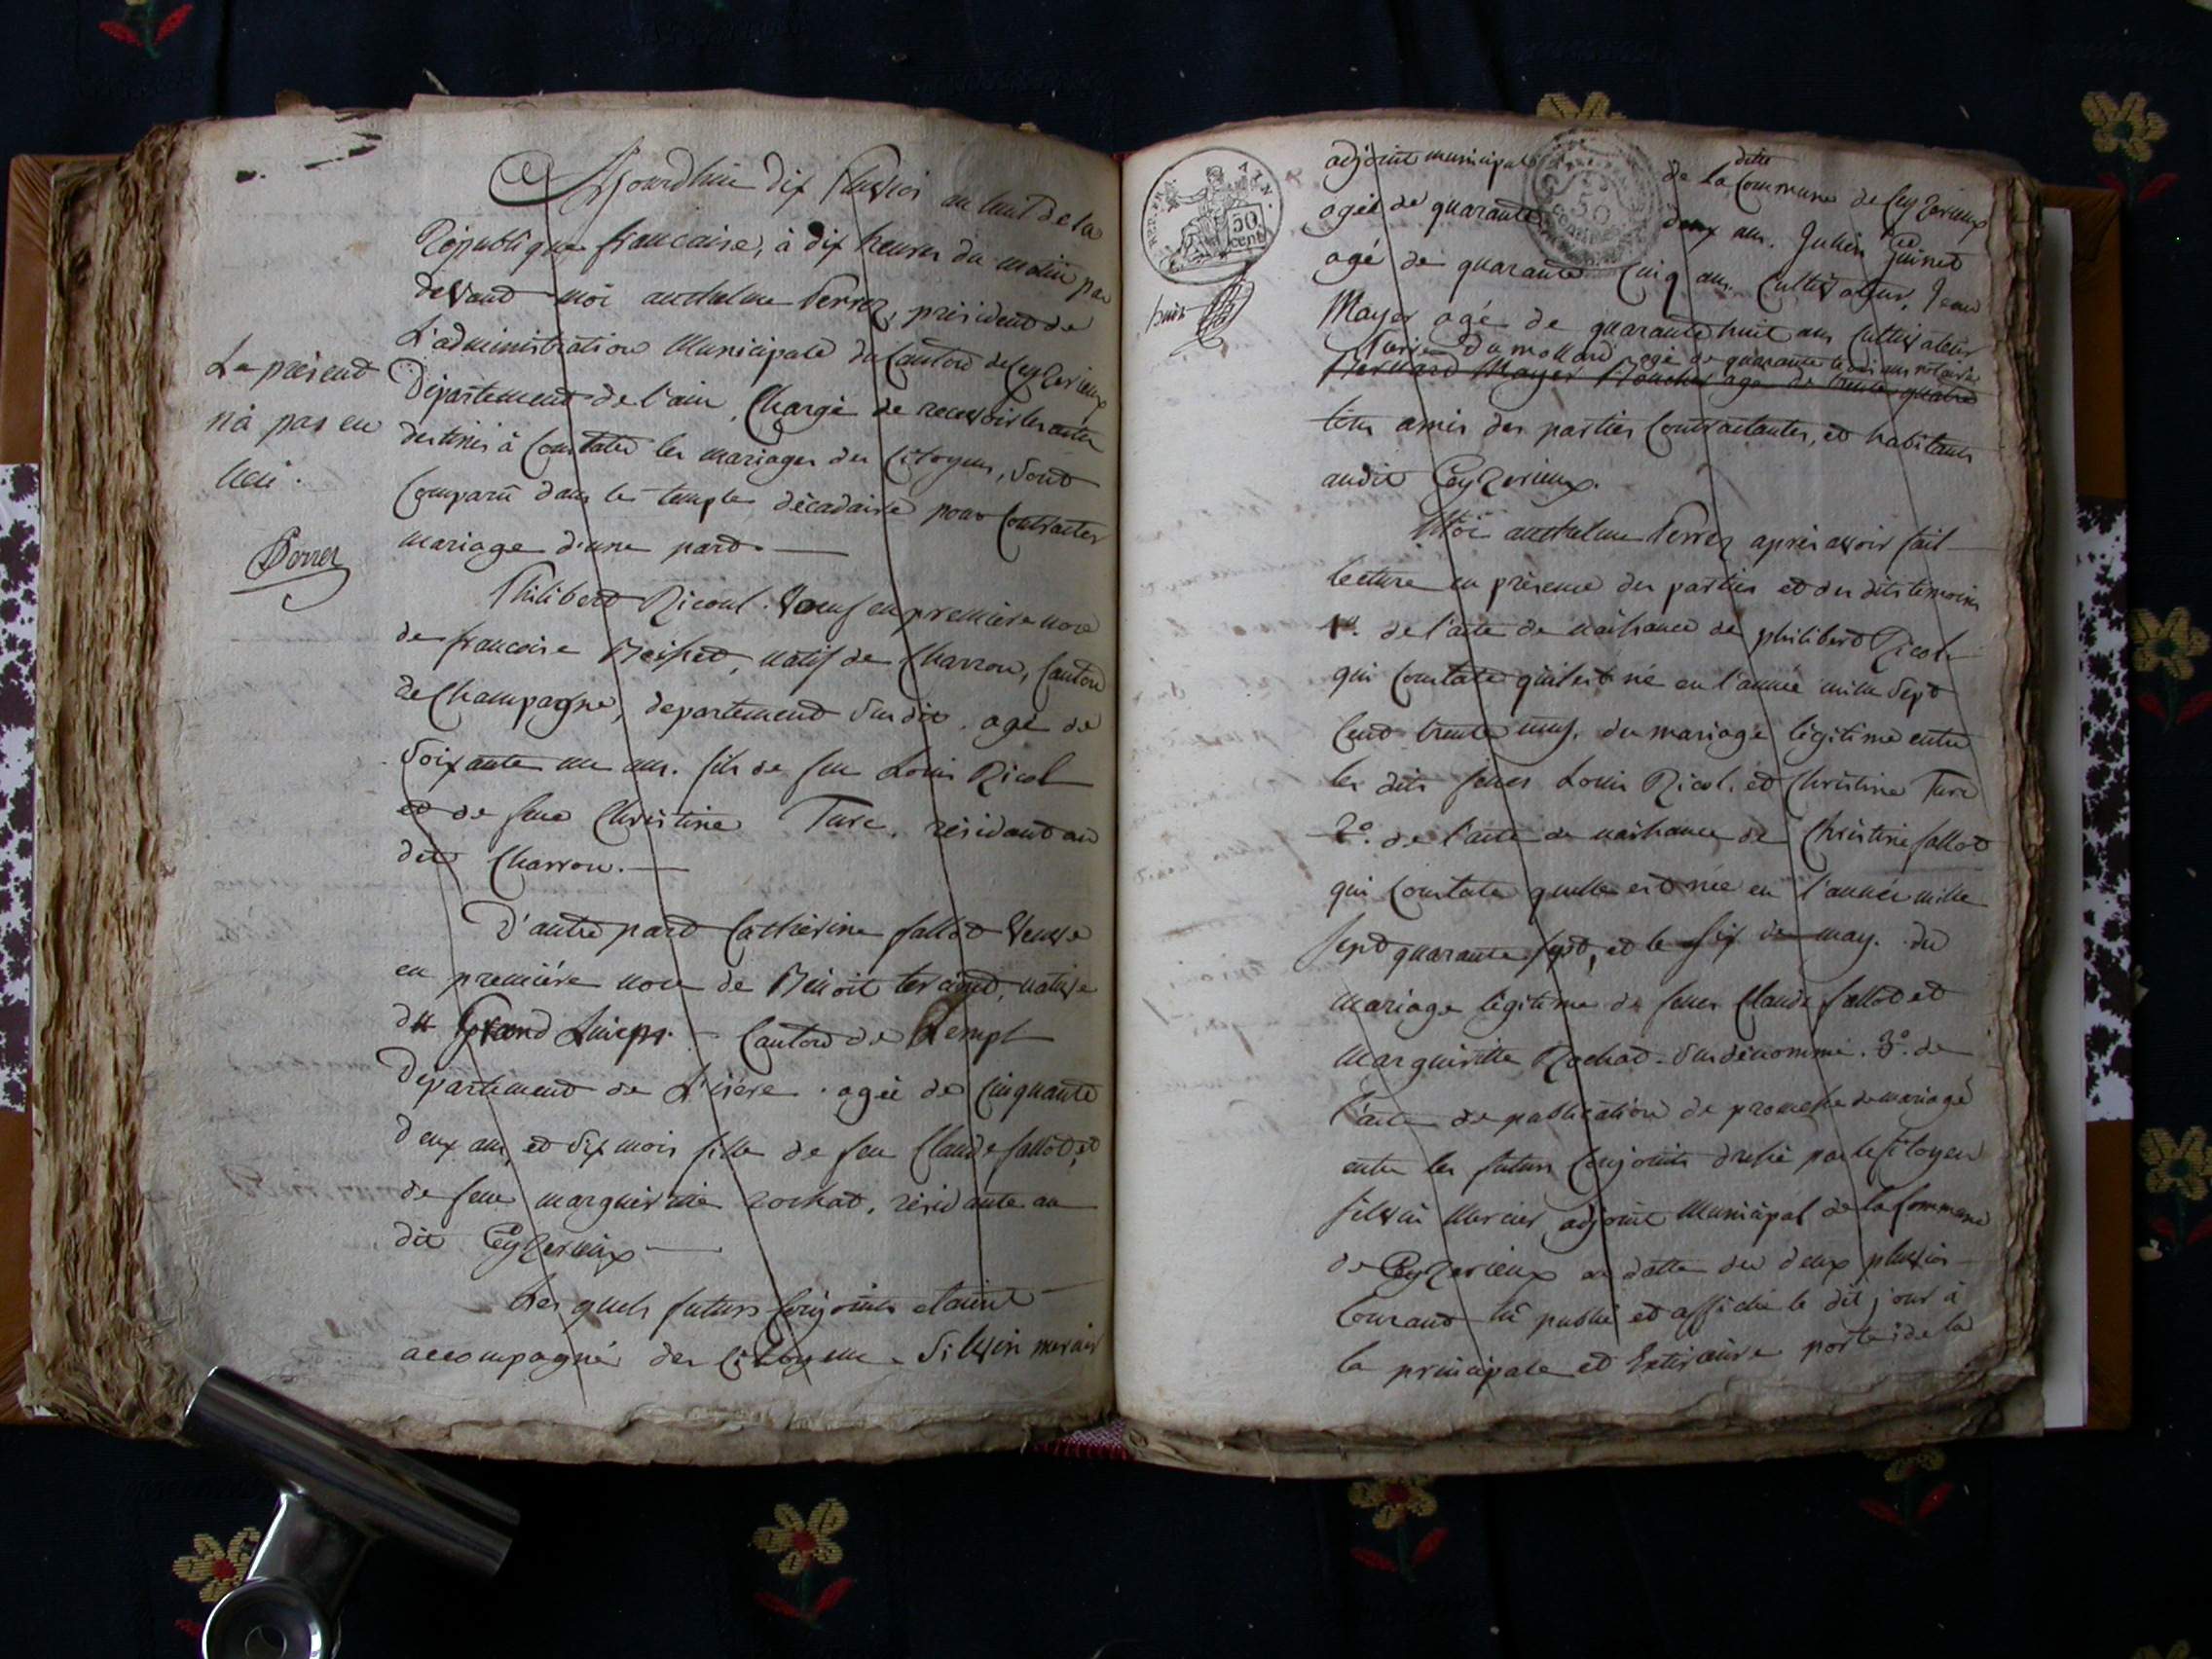 Ajourdhui dix Pluvios an huit de la
République francaise, à dix heures du matin par
devand moi anthelme Perrez, président de
L'administration Municipale du Canton de Ceyzerieux
Département de l'ain, Chargé de recevoir les actes
destinés à Constater les mariages des Citoyens, sont
Comparû dans le temple décadaire pour Contracter
mariage d'une pard.
La présend
n'à pas eu
lieu.
Perrez
Philiberd Ricol. Veuf en première noce
de francoise natif de Charron, Canton
de Champagne, departemend Susdit. agé de
Soixante un ans. fils de feu Louis Ricol
et de feue Christine Turc, résidant au
dit Charron.
D'autre pard Cathérine fallod Veuve
en première noce de Bénoit native
du Grand Canton de Lempt
Département de L'isére. agée de Cinquante
deux ans, et Six mois fille de feu Claude fallod, et
de feue margueritte rochad, résidante au
dit Ceyzerieux
Les quels futurs Conjoints etaint
accompagné des Citoyens Silvin mercier
50
cent
adjoint municipal de la ditte Commune de Ceyzerieux
agée de quarante deux ans. Julien Guined
agé de quarante Cinq ans. Cultivateur, Jean
Mayer agé de quarante huit ans Cultivateur
du mollard agé de quarante trois ans notaire
Bernard Mayer agé de trente quatre
tous amis des parties Contractantes, et habitants
audit Ceyzerieux.
Moi anthelme Perrez après avoir fait
lecture en présence des parties et des dits témoins
1er. de l'acte de naissance de philiberd Ricol
qui Constate qu'il est né en l'année mille Sept
Cend trente neuf, du mariage légitime entre
les dits feues Louis Ricol. et Christine Turc
2º. de l'acte de naissance de Christine fallod
qui Constate quelle est née en l'année mille
Sept quarante Sept, et le six de may. du
mariage légitime de feues Claude fallod et
margueritte Rochad. Susdénommé. 3º. de
l'acte de publication de promesse de mariage
entre les futurs Conjoints dressé par le Citoyen
Silvin Mercier, adjoint Municipal de la Commune
de Ceyzerieux en datte du deux pluvios
Courand lû publié et affiché le dit jour à
la principale et Extérieure porte de la